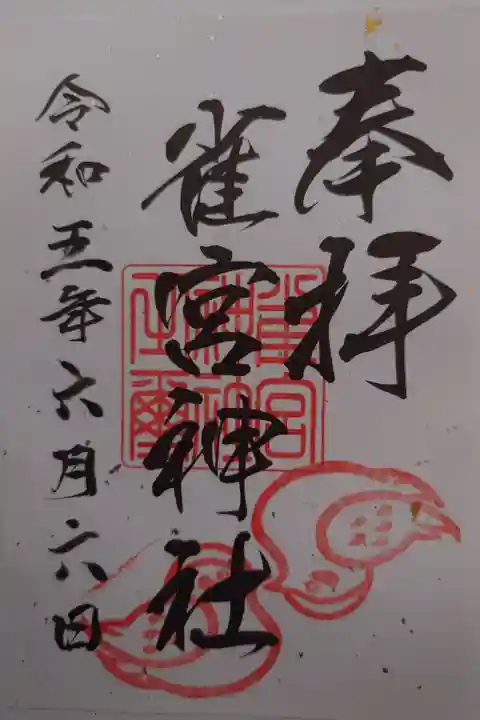 奉拝
雀宮神社
令和五年六月六日